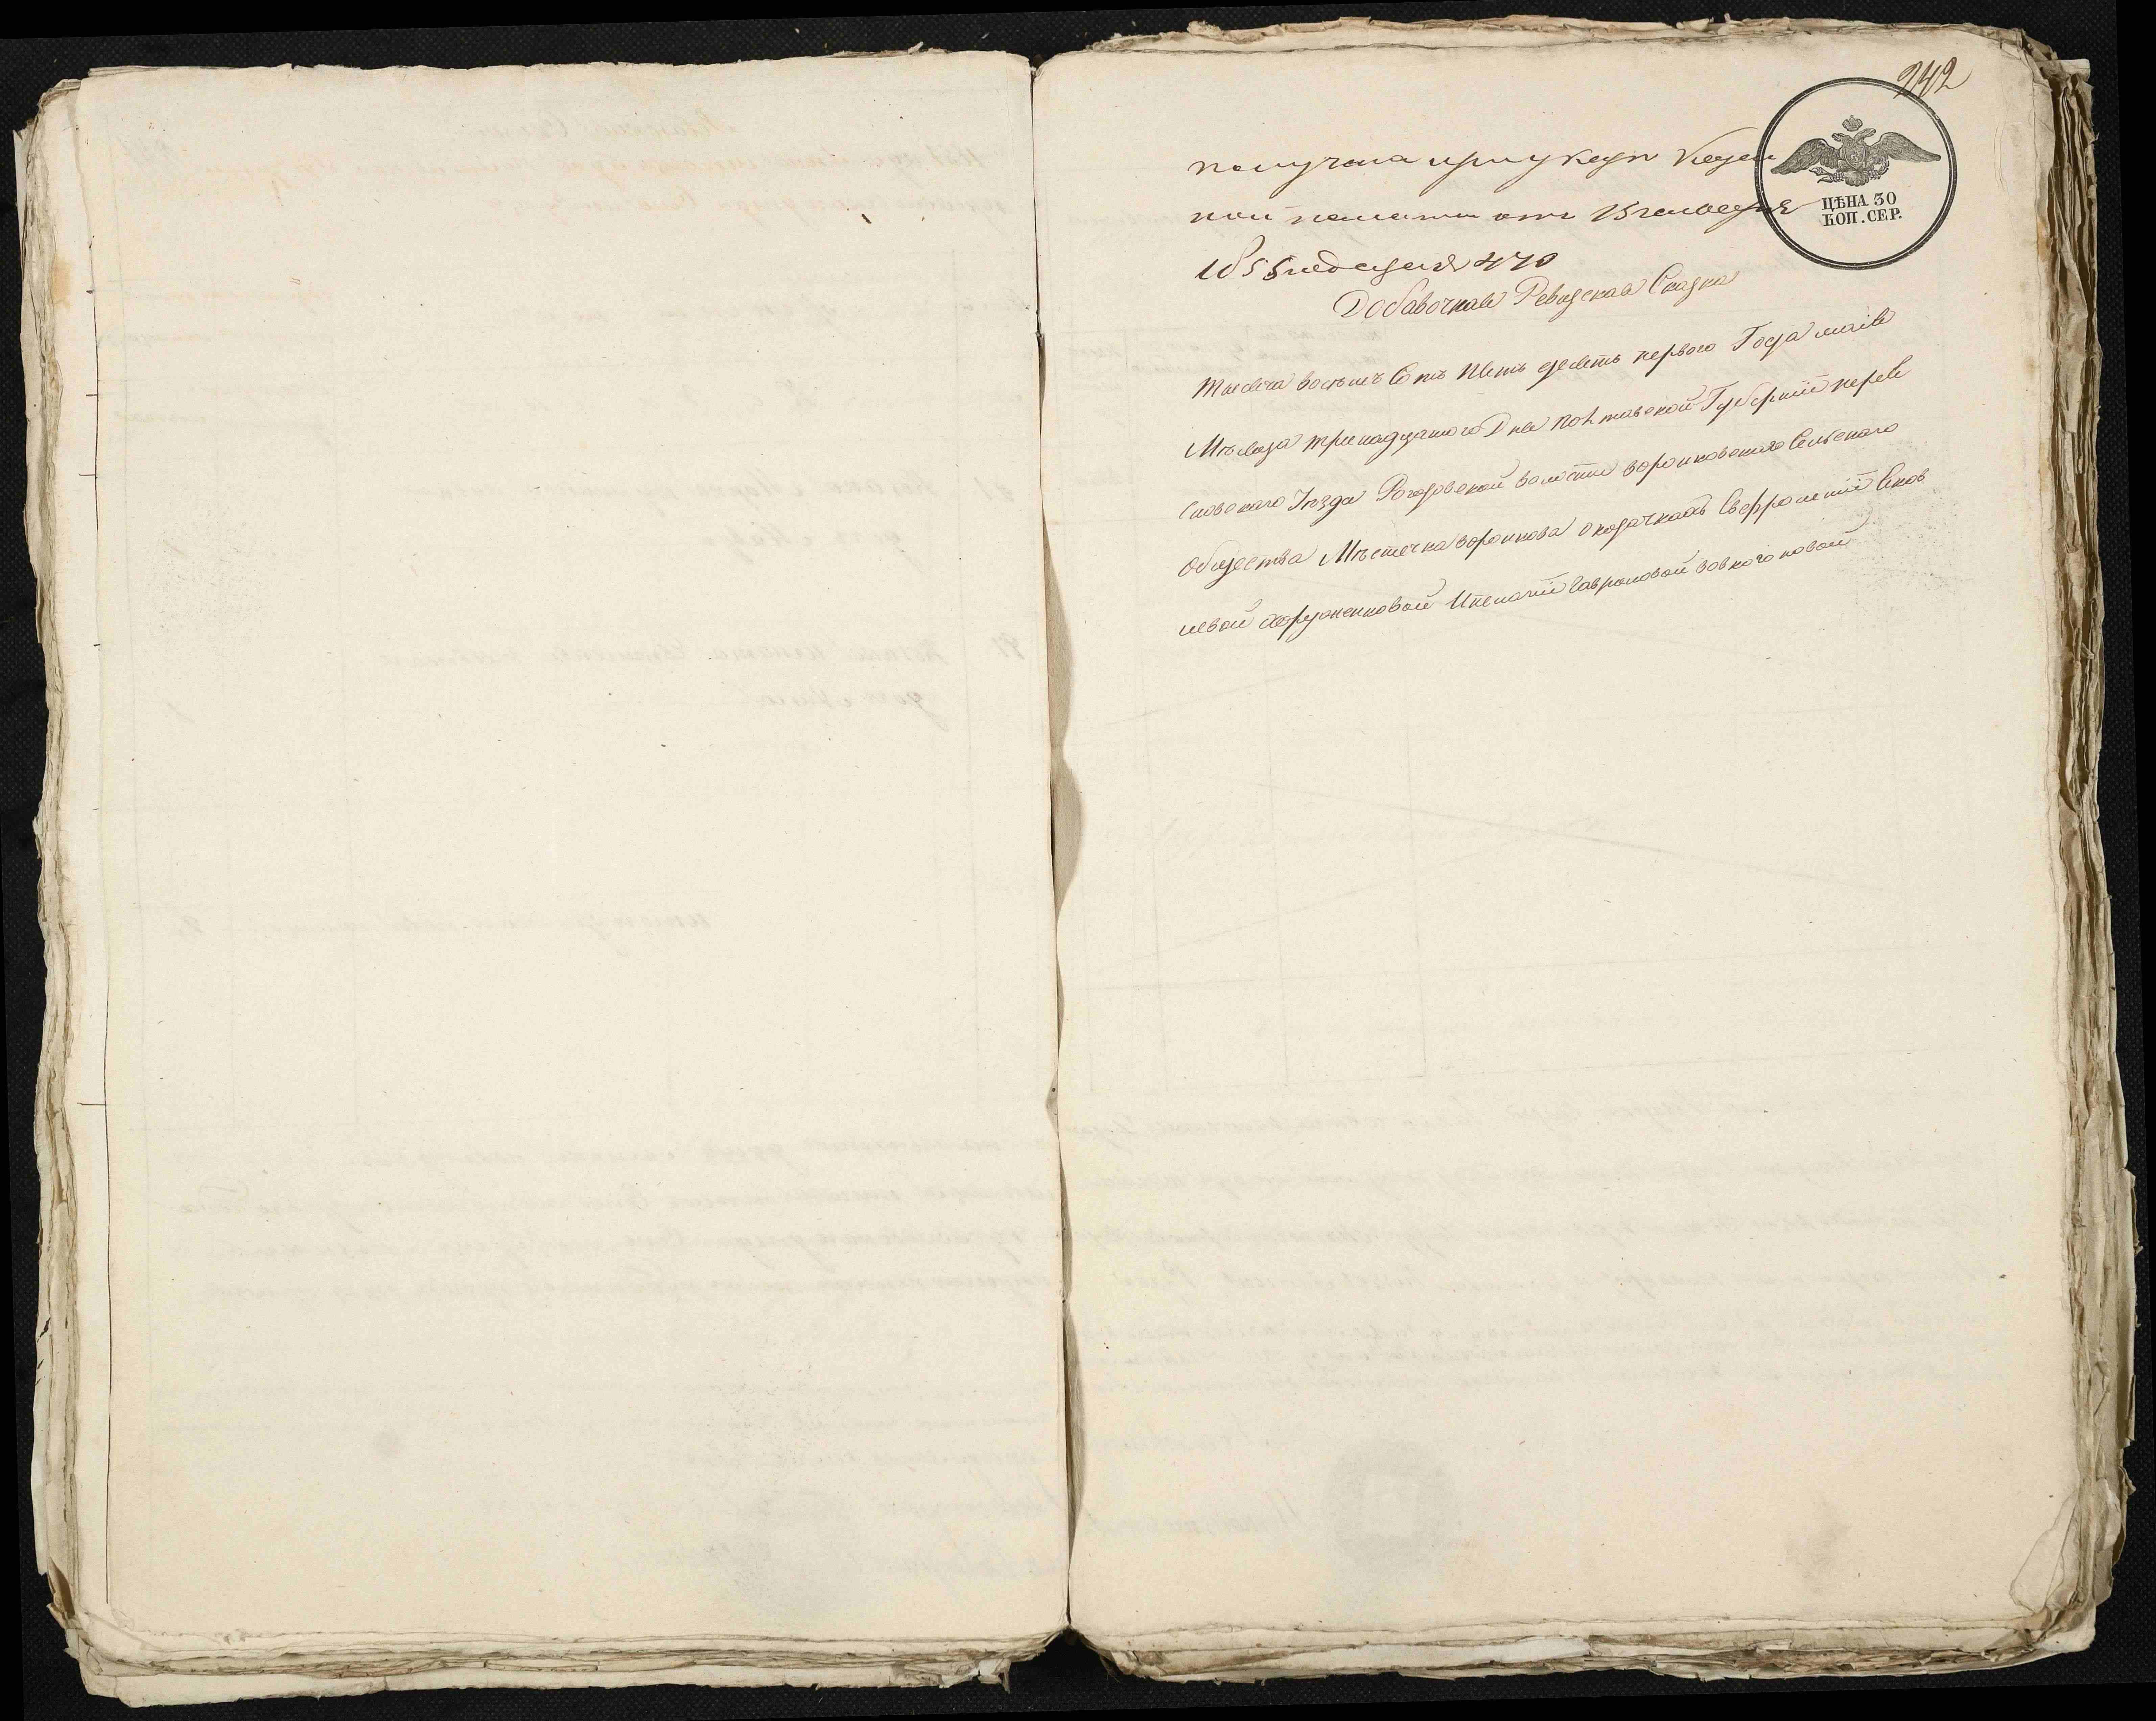 242
ЦѢНА 30
КОП. СЕР.
получена при указе Казен
ной палаты отъ 15 генваря
1855 года за № 470
Добавочная Ревизская Сказка
Тысяча восемъ Сотъ Пять десятъ первого Года маія
Мѣсяца тринадцатого Дня Полтавской Губерніи перея
словского Уѣзда Рогозовской волости воронковского Селского
Общества Мѣстечка воронкова о козачкахъ Евфросиніи
левой Хоруженковой И Гавриловой вовкогоновой